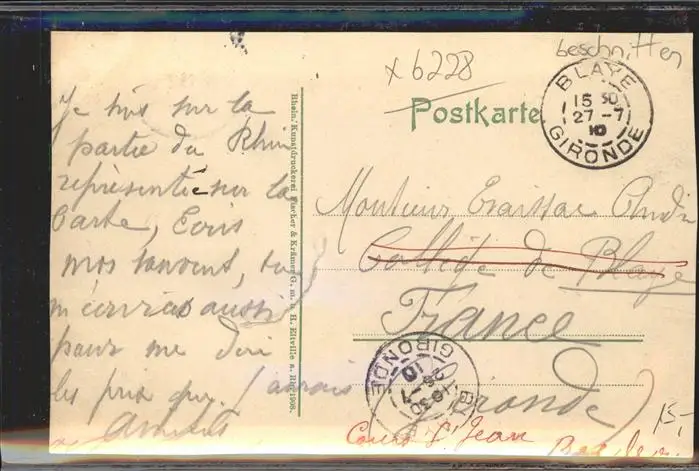 beschnitten
x 6228
Postkarte
BLAYE
15 30
27 - 7
10
GIRONDE
Je suis sur la
partie du Rhin
représentée sur la
Carte, Ecris
moi souvent, tu
m'écriras aussi
pour me dire
les prix que j'aurais
Rhein. Kunstdruckerei Fischer & Krämer G. m. b. H. Eltville a. Rh. 1908.
Monsieur
Collège de Blaye
France
Gironde
GIRONDE
Cours St Jean
15,-